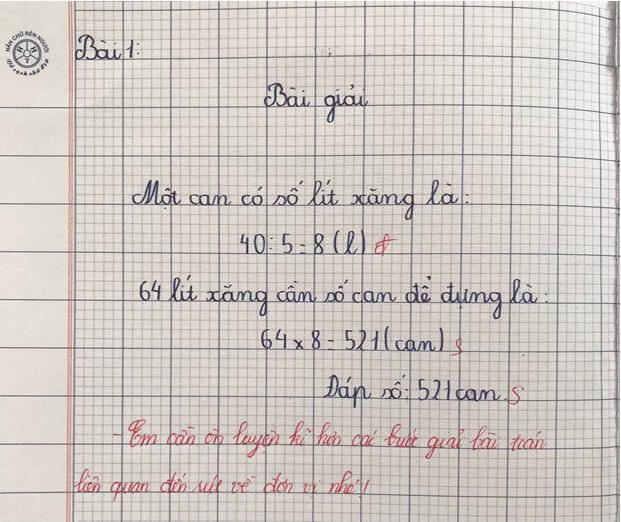 NẮN CHỮ RÈN NGƯỜI
Bài 1:
Bài giải
Một can có số lít xăng là:
40 : 5 = 8 (l) đ
64 lít xăng cần số can để đựng là:
64 x 8 = 521 (can) s
Đáp số: 521 can. S
- Em cần ôn luyện kĩ hơn các bước giải bài toán
liên quan đến rút về đơn vị nhé!